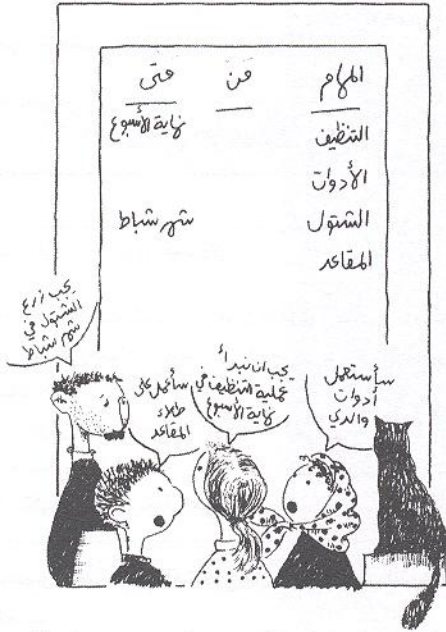 المهام من متى
التنظيف نهاية الأسبوع
الأدوات
الشتول شهر شباط
المقاعد
يجب زرع
الشتول في
شهر شباط
سأعمل على
طلاء
المقاعد
يجب ان نبدأ
عملية التنظيف في
نهاية الأسبوع
سأستعمل
أدوات
والدي